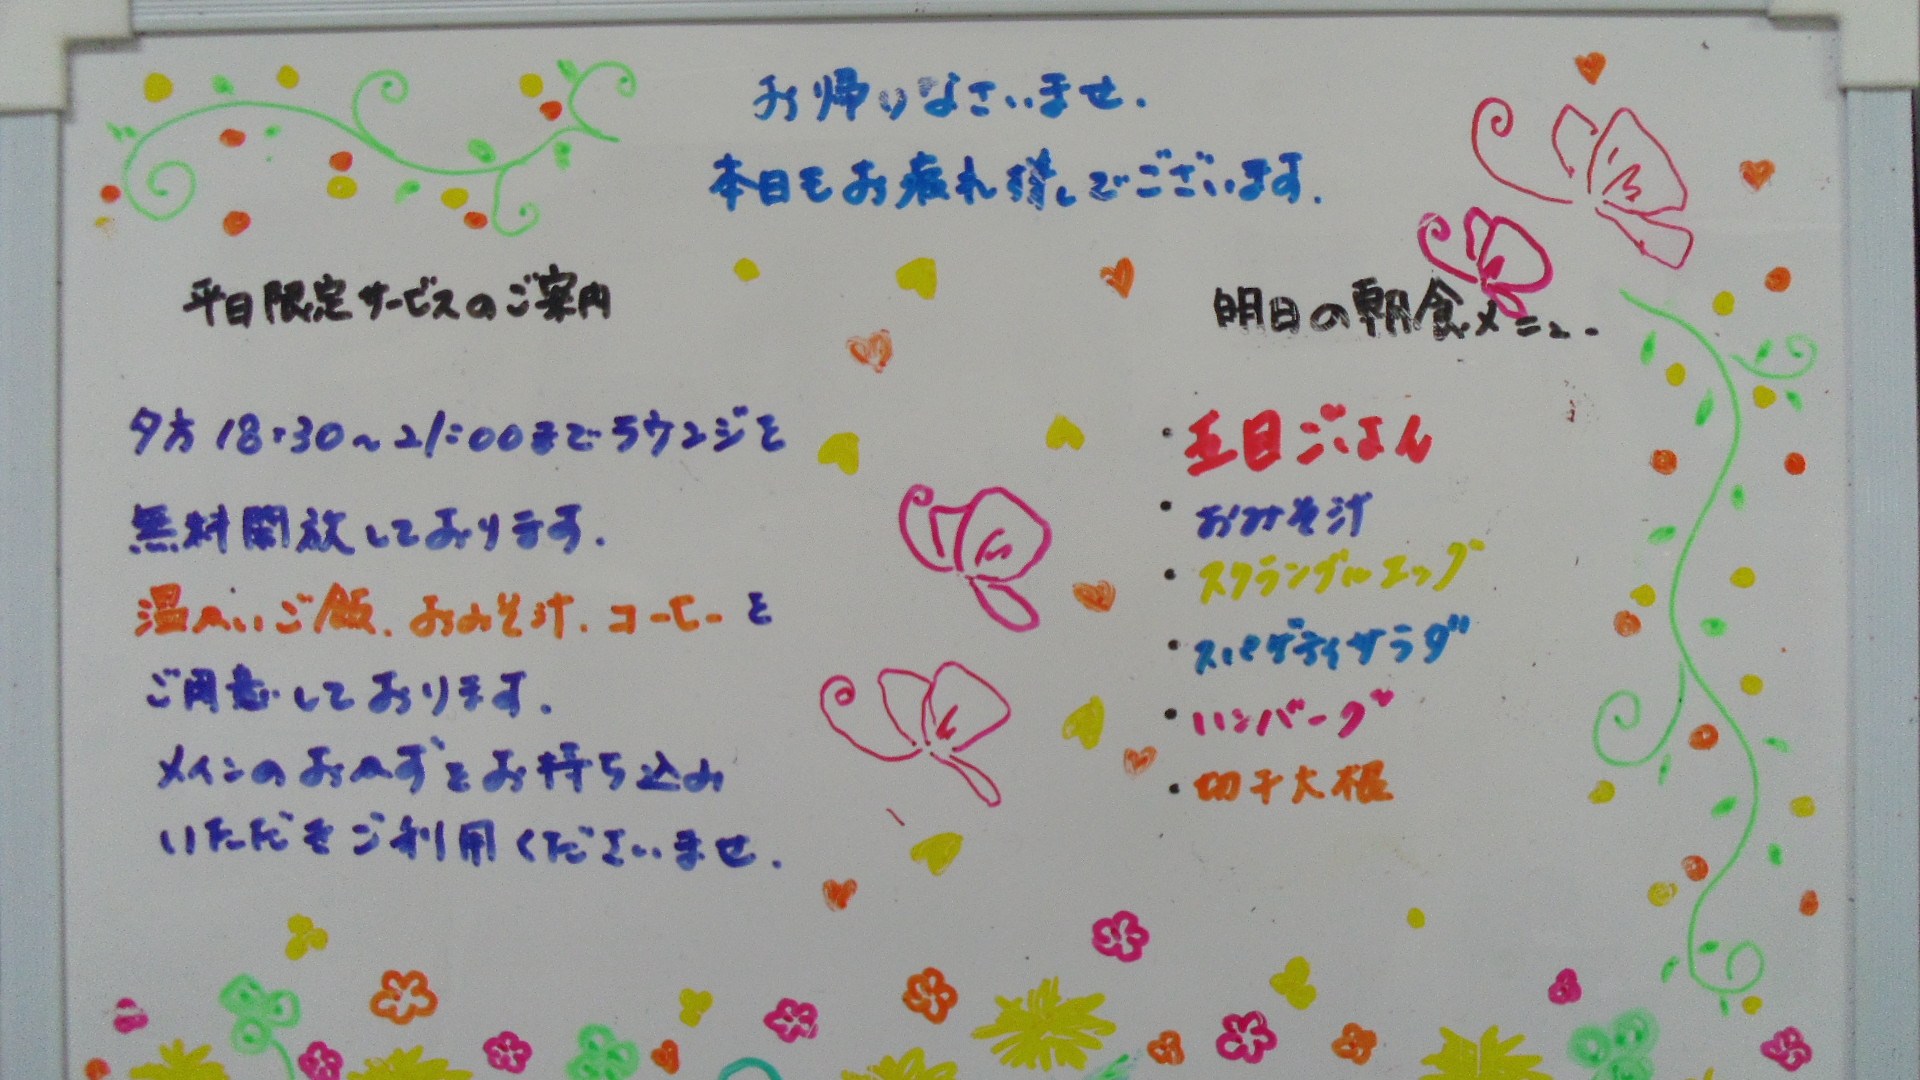 お帰りなさいませ.
本日もお疲れ様でございます.
平日限定サービスのご案内
夕方18:30~21:00までラウンジを
無料開放しております.
温かいご飯、おみそ汁、コーヒーを
ご用意しております.
メインのおかずをお持ち込み
いただきご利用くださいませ.
明日の朝食メニュー
・五目ごはん
・おみそ汁
・スクランブルエッグ
・スパゲティサラダ
・ハンバーグ
・切干大根